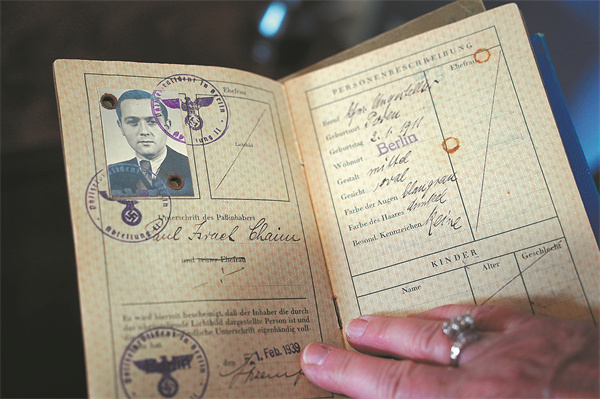 Polizeipräsident in Berlin
Abteilung II
Ehefrau
Lichtbild
Unterschrift des Paßinhabers
Paul Israel Chaim
und seiner Ehefrau
Es wird hiermit bescheinigt, daß der Inhaber die durch
das Lichtbild dargestellte Person ist und
die Unterschrift eigenhändig voll
hat
den 1. Feb. 1939
PERSONENBESCHREIBUNG
Ehefrau
Beruf Kfm. Angestellter
Geburtsort Posen
Geburtstag 2.6.1911
Wohnort Berlin
Gestalt mittel
Gesicht oval
Farbe der Augen blaugrau
Farbe des Haares dunkel
Besond. Kennzeichen Keine
KINDER
Name
Alter
Geschlecht